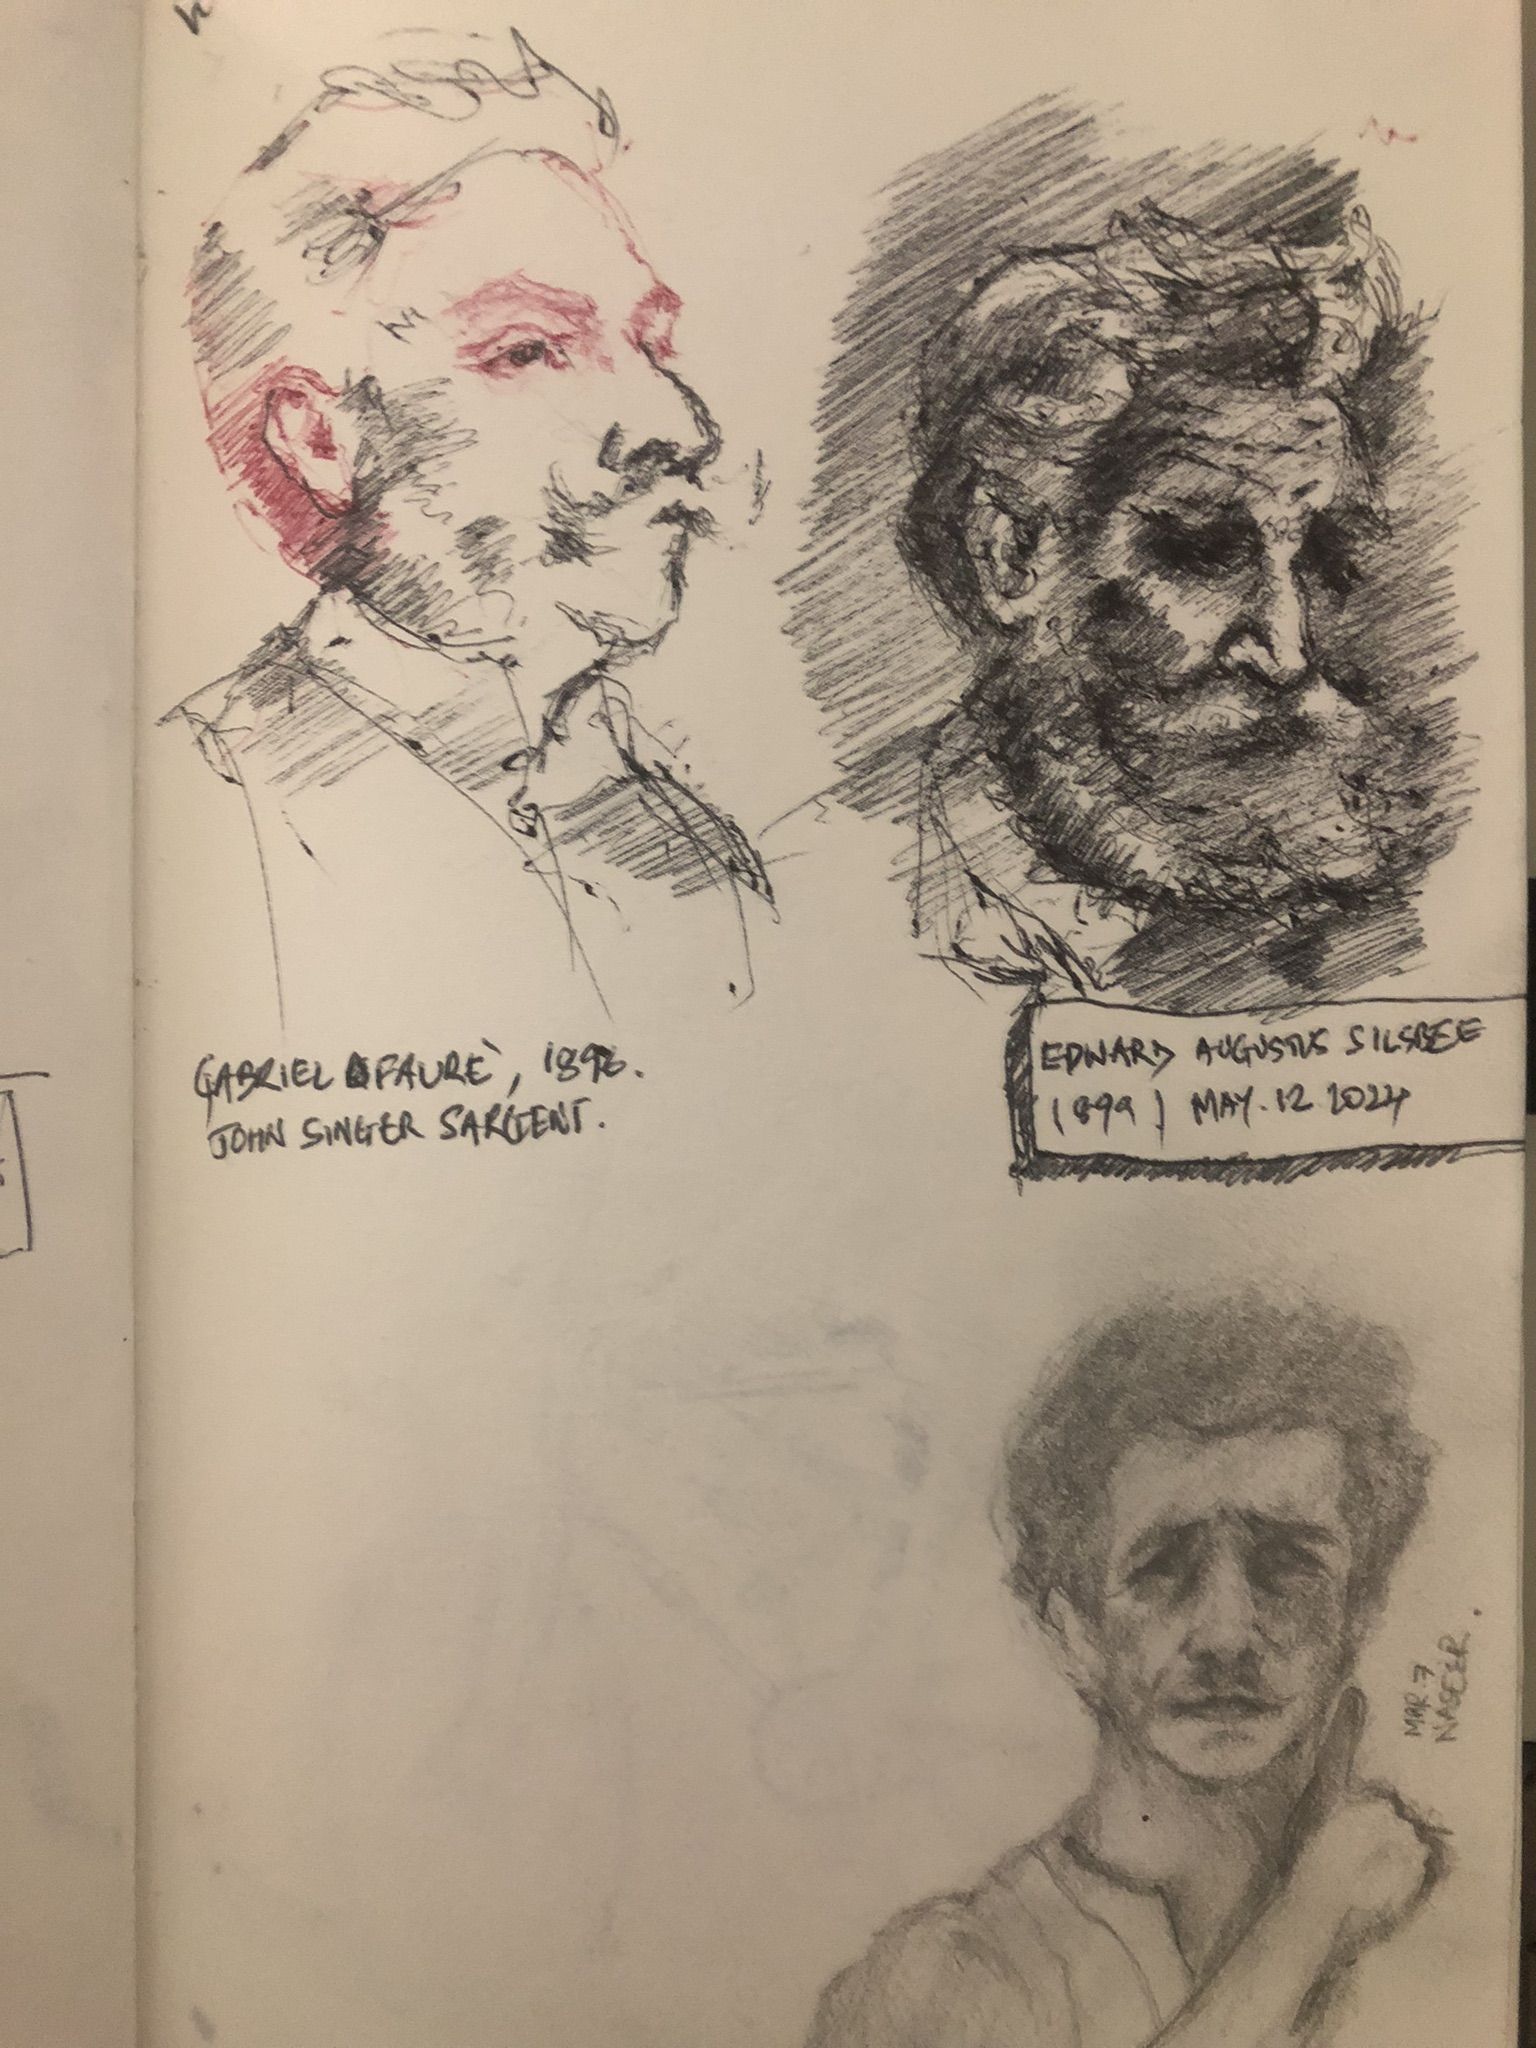 GABRIEL FAURÈ, 1896.
JOHN SINGER SARGENT.
EDWARD AUGUSTUS SILSBEE
1899 | MAY.12.2024
MAR.7
NASEER.